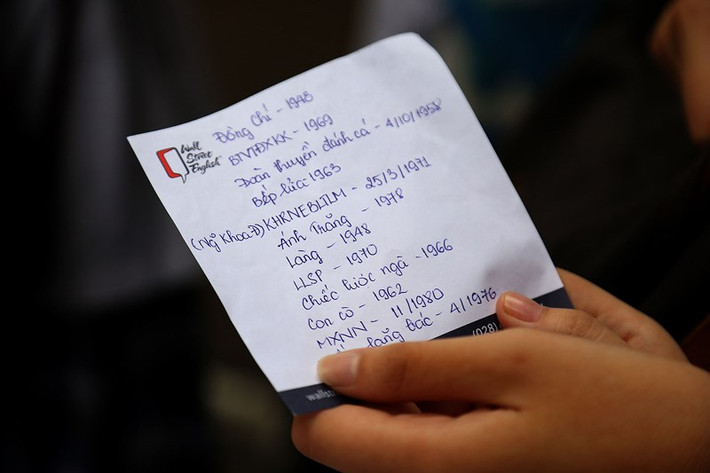 Wall
Street
English
Đồng Chí - 1948
BTVTĐXKK - 1969
Đoàn thuyền đánh cá - 4/10/1958
Bếp lửa 1963
(Ng̃ Khoa Đ) KHRNEBLTLM - 25/3/1971
Ánh Trăng - 1978
Làng - 1948
LLSP - 1970
Chiếc lược ngà - 1966
Con cò - 1962
MXNN - 11/1980
lăng Bác - 4/1976
(028)